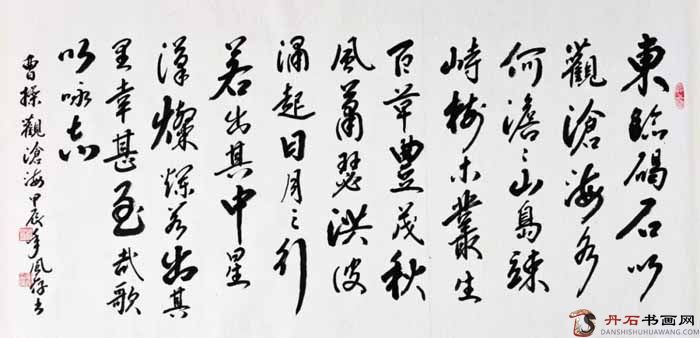 東臨碣石以
觀滄海水
何澹〻山島竦
峙樹木叢生
百草豐茂秋
風蕭瑟洪波
涌起日月之行
若出其中星
漢燦爛若出其
里幸甚至哉歌
以咏志
曹操觀滄海甲辰年風
丹石书画网
DANSHISHUHUAWANG.COM